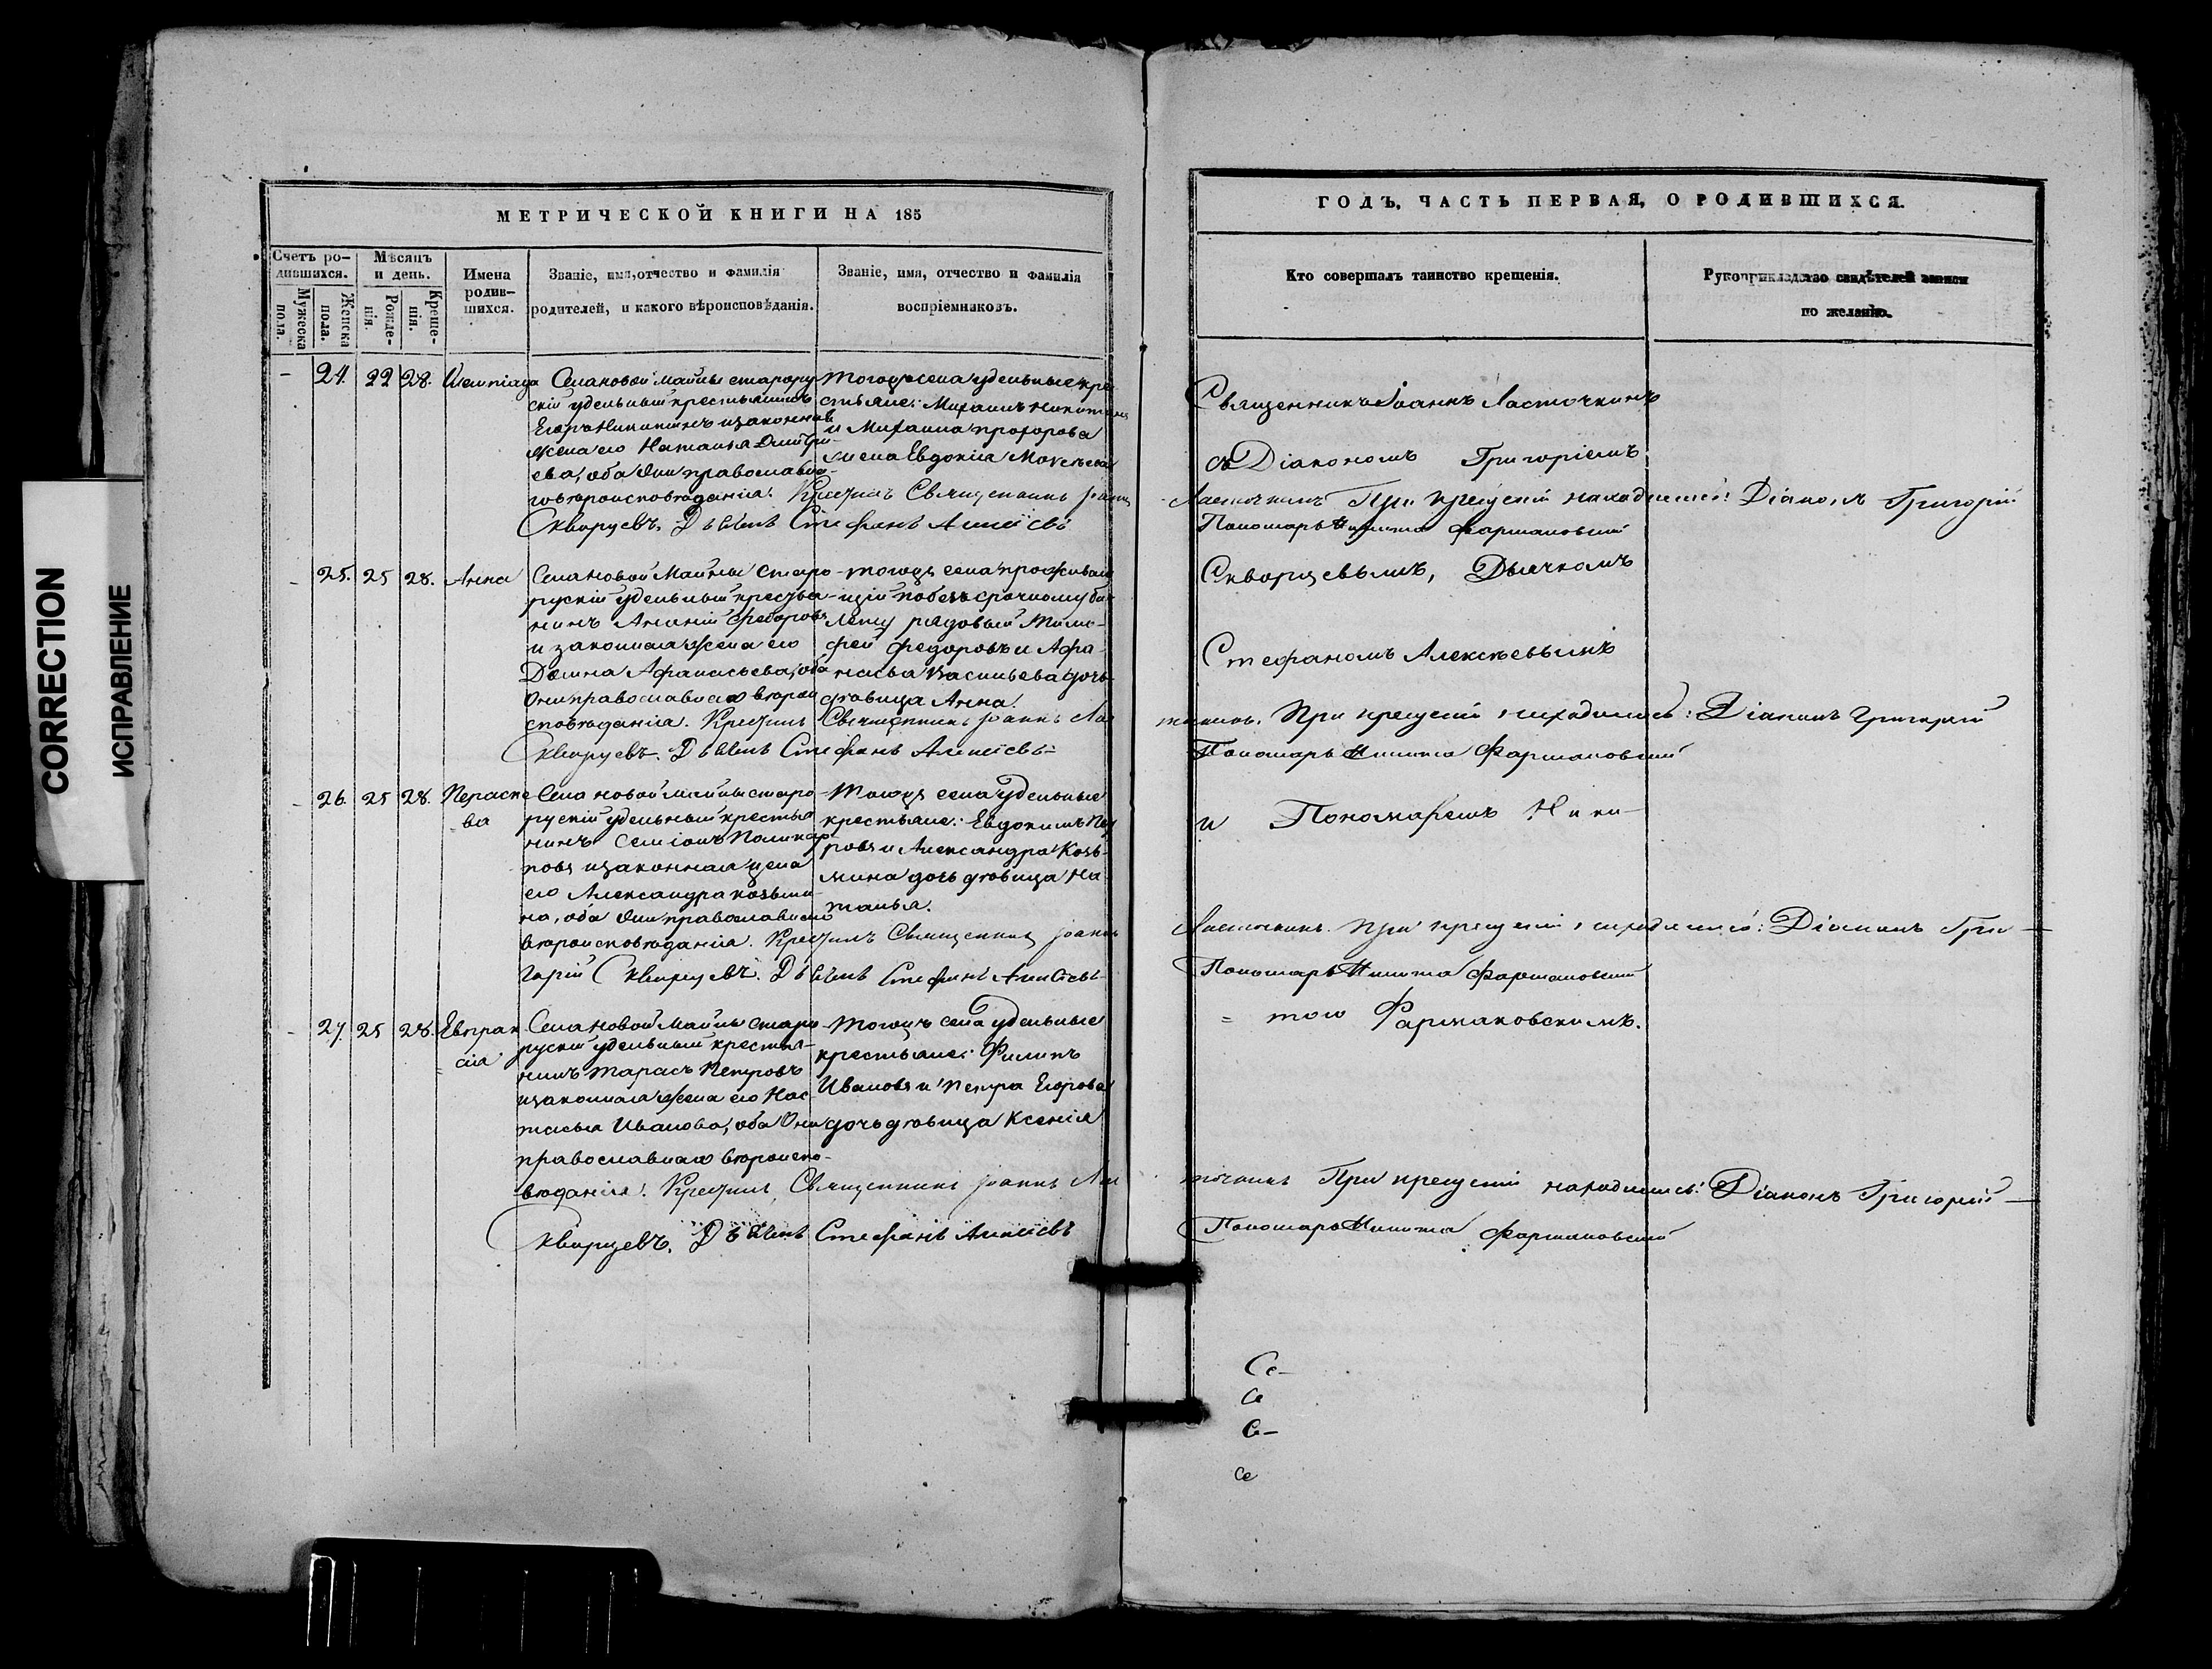 CORRECTION
ИСПРАВЛЕНИЕ
МЕТРИЧЕСКОЙ КНИГИ НА 185
Счетъ ро-
дившихся.
Мужеска
пола.
Женска
пола.
Мѣсяцъ
и день.
Рожде-
нія.
Креще-
нія.
Имена
родив-
шихся.
Званіе, имя, отчество и фамилія
родителей, и какого вѣроисповѣданія.
Званіе, имя, отчество и фамилія
воспріемниковъ.
- 24. 22 28.
Села новой майны старору-
скій удельный крестьянинъ
Егоръ Никитинъ изаконная
жена его Наталья Дмитри-
ева, оба они православна-
говероисповѣданія. Крестилъ Священникъ Іоаннъ
Скворцевъ. Дьячекъ Стефанъ Алексіевъ
Тогожъ села удельные кре-
стьяне: Михаилъ Никитинъ
и Михаила прохорова
жена Евдокія Мокѣева
- 25. 25 28. Анна
Села новой Майны старо-
руский удельный крестья-
нинъ Ананій Федоровъ
и законная жена его
Домна Афанасьева, оба
они православнаго вѣрои
споведанія. Крестилъ Священникъ Іоаннъ Лас
Скворцевъ. Дьячекъ Стефанъ Алексіевъ
Тогожъ села прожива
щій побезсрочному би
лету рядовый Тимо-
фей Федоровъ и Афа-
насья Васильева дочь
девица Анна.
- 26. 25 28. Пераске
ва
Села новой майны старо
рускій удельный крестья
нинъ Семіонъ Поликар
повъ изаконная жена
его Александра козьми-
на, оба они православнаго
вероисповеданія. Крестилъ Священникъ Іоаннъ
горій Скворцевъ. Дьячекъ Стефанъ Алексіевъ
Тогожъ села удельные
крестьяне: Евдокимъ Пет
ровъ и Александра Козь-
мина дочь девица На
талья.
- 27. 25 28. Евпрак
сія
Села новой майны старо
руский удельный крестья-
нинъ Тарасъ Петровъ
изаконная жена его Нас
тасья Иванова, оба они
православнаго вероиспо-
веданія. Крестилъ Священникъ Іоаннъ Лас
Скворцевъ. Дьячекъ Стефанъ Алексіевъ
Тогожъ села удельные
крестьяне: Филипъ
Ивановъ и Петра Егорова
дочь девица Ксенія
ГОДЪ, ЧАСТЬ ПЕРВАЯ, О РОДИВШИХСЯ.
Кто совершалъ таинство крещенія.
Рукоприкладство свидѣтелей записи
по желанію.
Священникъ Іоаннъ Ласточкинъ
съ Діакономъ Григоріемъ
Ласточкинъ При крещеніи находились: Діаконъ Григорій
Пономарь Никита Фармаковский
Скворцевымъ, Дьячкомъ
Стефаномъ Алексѣевымъ
точкинъ. При крещеніи находились: Діаконъ Григорий
Пономарь Никита Фармаковский
и Пономаремъ Ники-
Ласточкинъ. При крещеніи находились: Діаконъ Гри-
Пономарь Никита Фармаковский
= тою Фармаковскимъ.
точкинъ При крещеніи находились: Діаконъ Григорий
Пономарь Никита Фармаковский